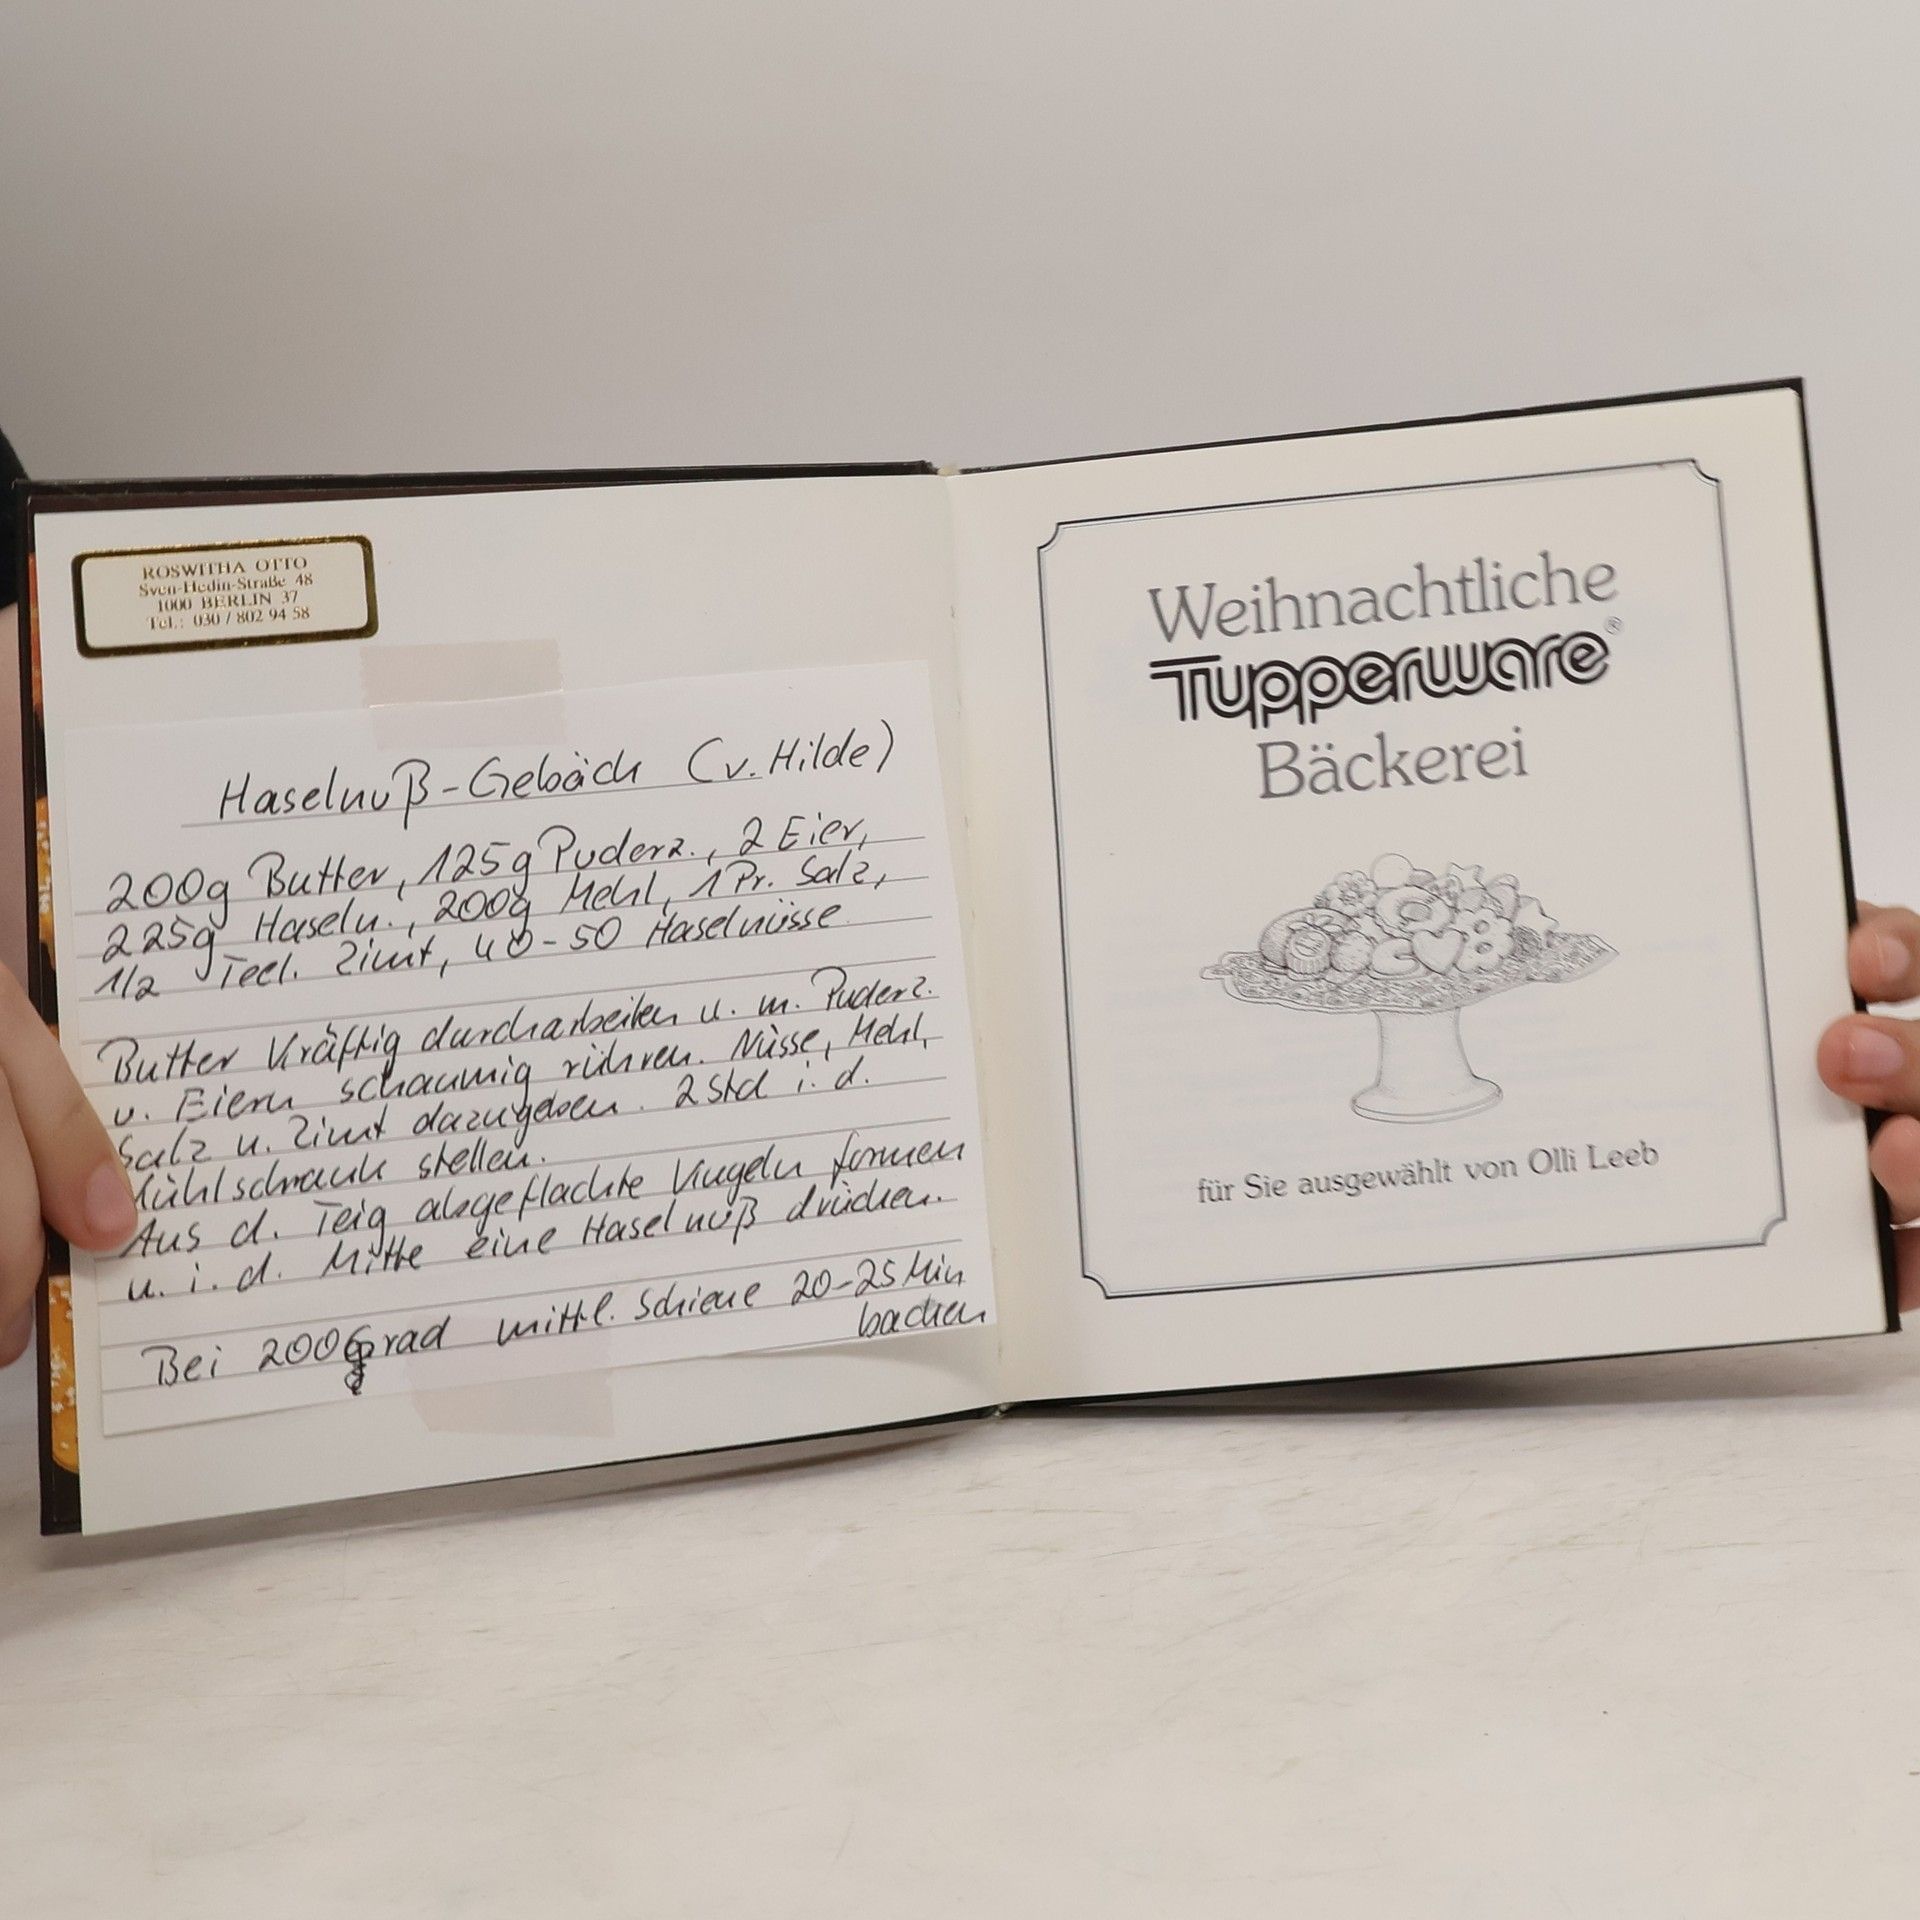 ROSWITHA OTTO
Sven-Hedin-Straße 48
1000 BERLIN 37
Tel.: 030 / 802 94 58
Haselnuß-Gebäck (v. Hilde)
200g Butter, 125g Puderz., 2 Eier,
225g Haseln., 200g Mehl, 1 Pr. Salz,
1/2 Teel. Zimt, 40-50 Haselnüsse
Butter kräftig durcharbeiten u. m. Puderz.
u. Eiern schaumig rühren. Nüsse, Mehl,
Salz u. Zimt dazugeben. 2 Std i. d.
Kühlschrank stellen.
Aus d. Teig abgeflachte Kugeln formen
u. i. d. Mitte eine Haselnuß drücken.
Bei 200 Grad mittl. Schiene 20-25 Min
backen
Weihnachtliche
Tupperware®
Bäckerei
für Sie ausgewählt von Olli Leeb